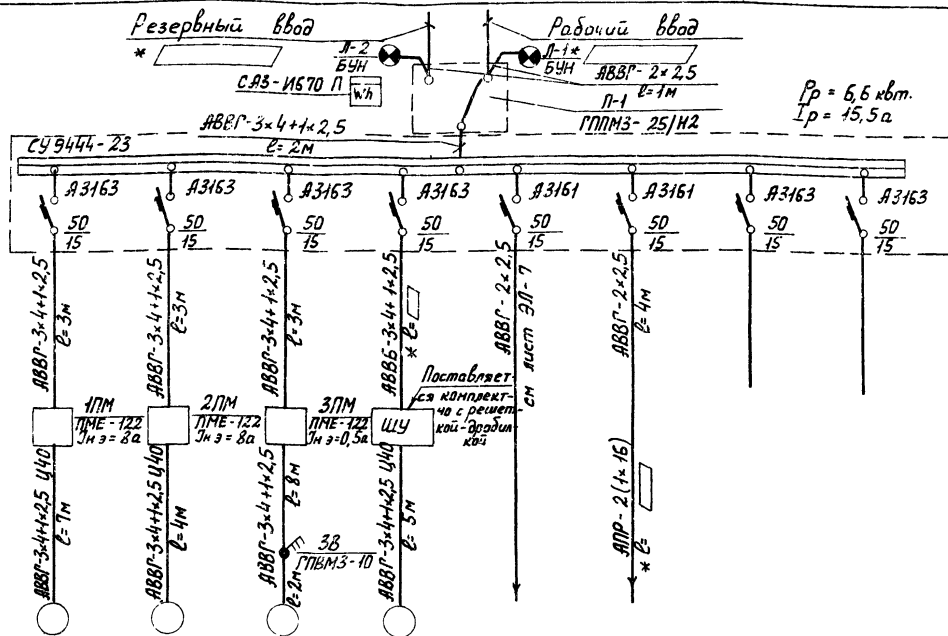 Резервный ввод
*
Рабочий ввод
Л-2
БУН
Л-1*
БУН
АВВГ-2×2,5
ℓ=1м
САЗ-И670 П
Wh
П-1
ГППМЗ-25/Н2
Pр = 6,6 квт.
Iр = 15,5а
АВВГ-3×4+1×2,5
ℓ=2м
СУ 9444-23
А3163
50
15
А3163
50
15
А3163
50
15
А3163
50
15
А3161
50
15
А3161
50
15
А3163
50
15
А3163
50
15
АВВГ-3×4+1×2,5
ℓ=3м
АВВГ-3×4+1×2,5
ℓ=3м
АВВГ-3×4+1×2,5
ℓ=3м
АВВБ-3×4+1×2,5
* ℓ=
АВВГ-2×2,5
см лист ЭЛ-7
АВВГ-2×2,5
ℓ=4м
1ПМ
ПМЕ-122
Iн э = 8а
2ПМ
ПМЕ-122
Iн э = 8а
3ПМ
ПМЕ-122
Iн э=0,5а
ШУ
Поставляет-
ся комплект-
но с решет-
кой-дробил-
кой
АВВГ-3×4+1×2,5 Ц40
ℓ=7м
АВВГ-3×4+1×2,5 Ц40
ℓ=4м
АВВГ-3×4+1×2,5
ℓ=8м
3В
ГПВМЗ-10
ℓ=2м
АВВГ-3×4+1×2,5 Ц40
ℓ=5м
АПР-2(1×16)
* ℓ=